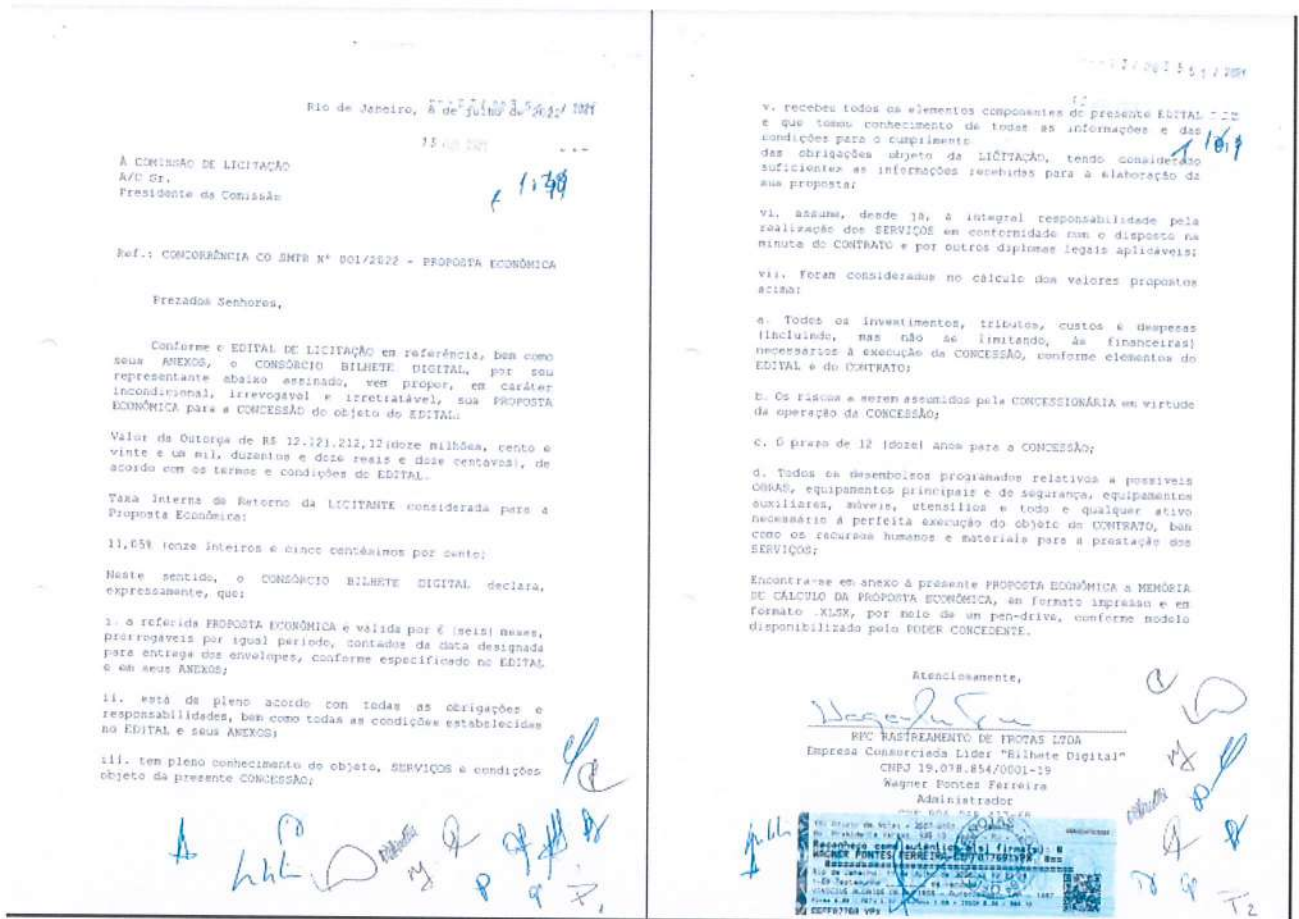 Rio de Janeiro, 8 de julho de 2022
À COMISSÃO DE LICITAÇÃO
A/C Sr.
Presidente da Comissão
Ref.: CONCORRÊNCIA CO SMTR Nº 001/2022 - PROPOSTA ECONÔMICA
Prezados Senhores,
Conforme o EDITAL DE LICITAÇÃO em referência, bem como
seus ANEXOS, o CONSÓRCIO BILHETE DIGITAL, por seu
representante abaixo assinado, vem propor, em caráter
incondicional, irrevogável e irretratável, sua PROPOSTA
ECONÔMICA para a CONCESSÃO do objeto do EDITAL:
Valor da Outorga de R$ 12.121.212,12(doze milhões, cento e
vinte e um mil, duzentos e doze reais e doze centavos), de
acordo com os termos e condições do EDITAL.
Taxa Interna de Retorno da LICITANTE considerada para a
Proposta Econômica:
11,05% (onze inteiros e cinco centésimos por cento)
Neste sentido, o CONSÓRCIO BILHETE DIGITAL declara,
expressamente, que:
i. a referida PROPOSTA ECONÔMICA é válida por 6 (seis) meses,
prorrogáveis por igual período, contados da data designada
para entrega dos envelopes, conforme especificado no EDITAL
e em seus ANEXOS;
ii. está de pleno acordo com todas as obrigações e
responsabilidades, bem como todas as condições estabelecidas
no EDITAL e seus ANEXOS;
iii. tem pleno conhecimento do objeto, SERVIÇOS e condições
objeto da presente CONCESSÃO;
v. recebeu todos os elementos componentes do presente EDITAL
e que tomou conhecimento de todas as informações e das
condições para o cumprimento
das obrigações objeto da LICITAÇÃO, tendo considerado
suficientes as informações recebidas para a elaboração da
sua proposta;
vi. assume, desde já, a integral responsabilidade pela
realização dos SERVIÇOS em conformidade com o disposto na
minuta do CONTRATO e por outros diplomas legais aplicáveis;
vii. Foram considerados no cálculo dos valores propostos
acima:
a. Todos os investimentos, tributos, custos e despesas
(incluindo, mas não se limitando, às financeiras)
necessários à execução da CONCESSÃO, conforme elementos do
EDITAL e do CONTRATO;
b. Os riscos a serem assumidos pela CONCESSIONÁRIA em virtude
da operação da CONCESSÃO;
c. O prazo de 12 (doze) anos para a CONCESSÃO;
d. Todos os desembolsos programados relativos a possíveis
OBRAS, equipamentos principais e de segurança, equipamentos
auxiliares, móveis, utensílios e todo e qualquer ativo
necessário à perfeita execução do objeto do CONTRATO, bem
como os recursos humanos e materiais para a prestação dos
SERVIÇOS;
Encontra-se em anexo à presente PROPOSTA ECONÔMICA a MEMÓRIA
DE CÁLCULO DA PROPOSTA ECONÔMICA, em formato impresso e em
formato .XLSX, por meio de um pen-drive, conforme modelo
disponibilizado pelo PODER CONCEDENTE.
Atenciosamente,
RFC RASTREAMENTO DE FROTAS LTDA
Empresa Consorciada Líder "Bilhete Digital"
CNPJ 19.078.854/0001-19
Wagner Pontes Ferreira
Administrador
Reconheço como autêntica(s) firma(s):
WAGNER PONTES FERREIRA